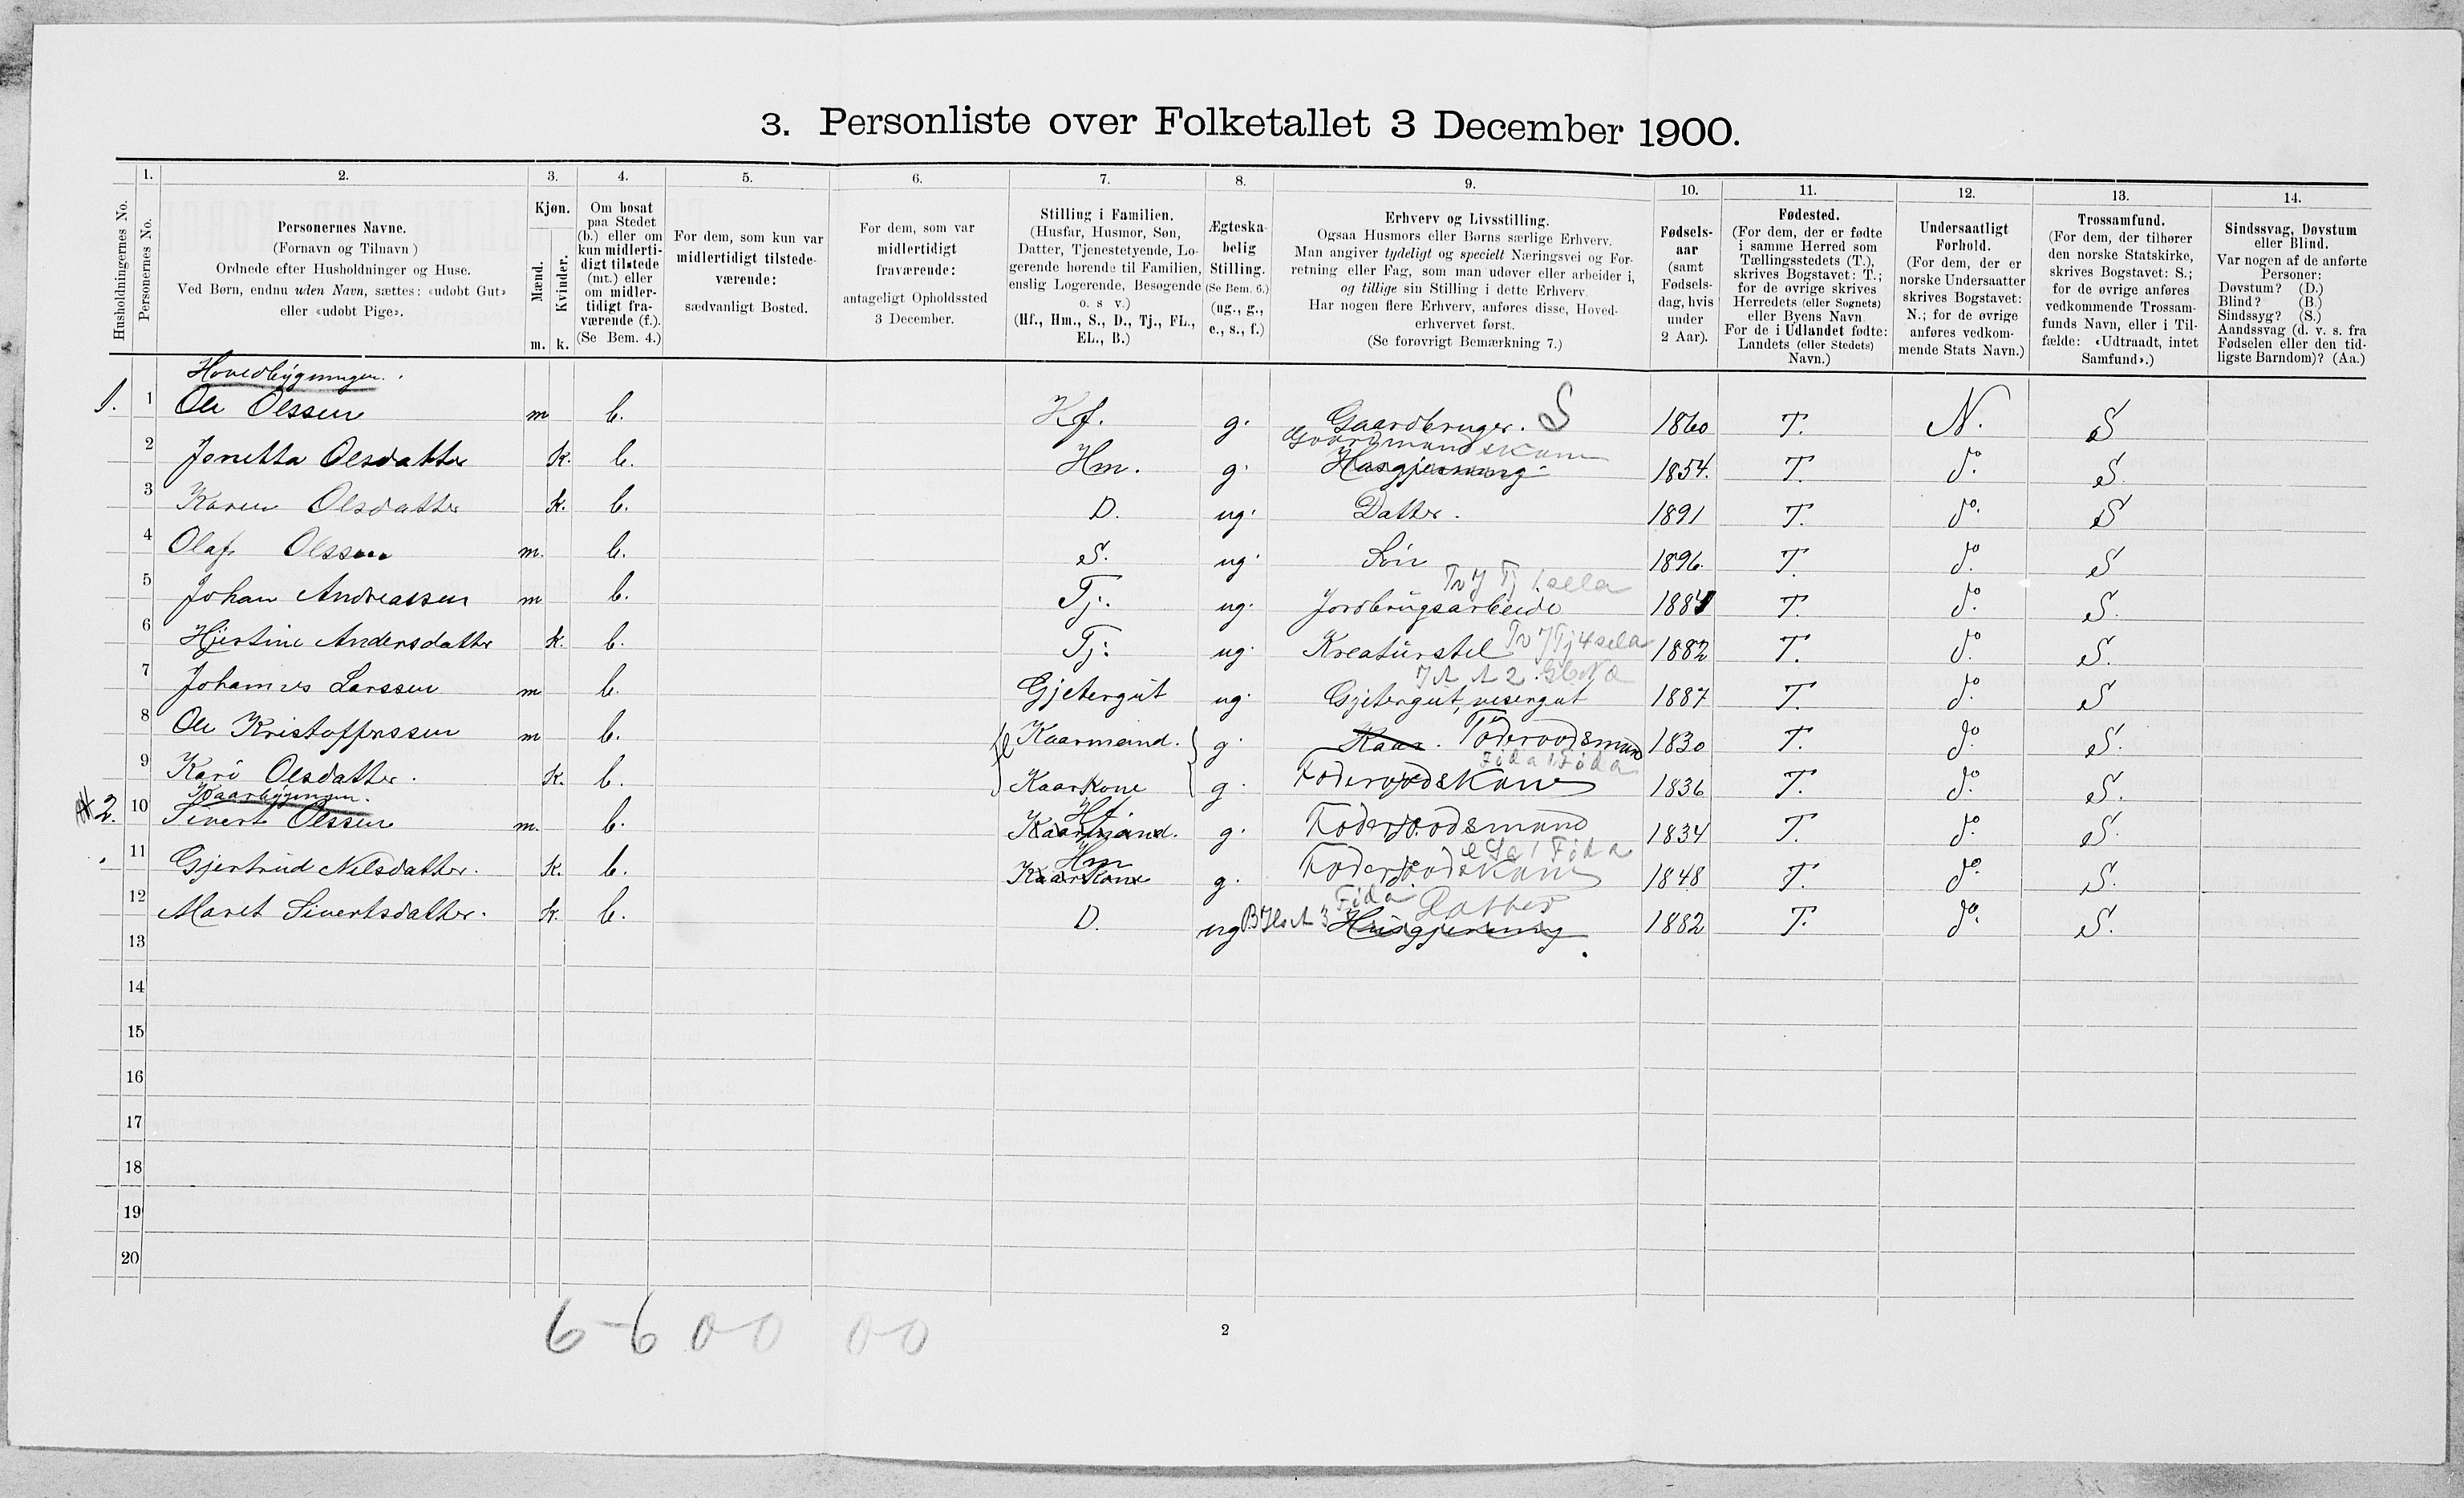 3. Personliste over Folketallet 3 December 1900.
1. 2. 3. 4. 5. 6. 7. 8. 9. 10. 11. 12. 13. 14.
Husholdningernes No.
Personernes No.
Personernes Navne.
(Fornavn og Tilnavn)
Ordnede efter Husholdninger og Huse.
Ved Børn, endnu uden Navn, sættes: «udøbt Gut»
eller «udøbt Pige».
Kjøn.
Mænd.
Kvinder.
m. k.
Om bosat
paa Stedet
(b.) eller om
kun midlerti-
digt tilstede
(mt.) eller
om midler-
tidigt fra-
værende (f.).
(Se Bem. 4.)
For dem, som kun var
midlertidigt tilstede-
værende:
sædvanligt Bosted.
For dem, som var
midlertidigt
fraværende:
antageligt Opholdssted
3 December.
Stilling i Familien.
(Husfar, Husmor, Søn,
Datter, Tjenestetyende, Lo-
gerende hørende til Familien,
enslig Logerende, Besøgende
o. s v.)
(Hf., Hm., S., D., Tj., FL.,
EL., B.)
Ægteska-
belig
Stilling.
(Se Bem. 6.)
(ug., g.,
e., s., f.)
Erhverv og Livsstilling.
Ogsaa Husmors eller Børns særlige Erhverv.
Man angiver tydeligt og specielt Næringsvei og For-
retning eller Fag, som man udøver eller arbeider i,
og tillige sin Stilling i dette Erhverv.
Har nogen flere Erhverv, anføres disse, Hoved-
erhvervet først.
(Se forøvrigt Bemærkning 7.)
Fødsels-
aar
(samt
Fødsels-
dag, hvis
under
2 Aar).
Fødested.
(For dem, der er fødte
i samme Herred som
Tællingsstedets (T.),
skrives Bogstavet: T.;
for de øvrige skrives
Herredets (eller Sognets)
eller Byens Navn.
For de i Udlandet fødte:
Landets (eller Stedets)
Navn.)
Undersaatligt
Forhold.
(For dem, der er
norske Undersaatter
skrives Bogstavet:
N.; for de øvrige
anføres vedkom-
mende Stats Navn.)
Trossamfund.
(For dem, der tilhører
den norske Statskirke,
skrives Bogstavet: S.;
for de øvrige anføres
vedkommende Trossam-
funds Navn, eller i Til-
fælde: «Udtraadt, intet
Samfund».)
Sindssvag, Døvstum
eller Blind.
Var nogen af de anførte
Personer:
Døvstum? (D.)
Blind? (B.)
Sindssyg? (S.)
Aandssvag (d. v. s. fra
Fødselen eller den tid-
ligste Barndom)? (Aa.)
Hovedbygningen.
1. 1 Ole Olssen m b. Hf. g. Gaardbruger. S 1860 T. N. S
Gaardmandskone
2 Jonetta Olsdatter k. b. Hm. g. Husgjerning 1854. T. do. S.
3 Karen Olsdatter k. b. D. ug. Datter. 1891 T. do. S
4 Olaf Olssen m. b. S. ug. Søn 1896. T. do. S
5 Johan Andreassen m b. Tj. ug. Jordbrugsarbeide 1884 T. do. S.
6 Hjertine Andersdatter k. b. Tj: ug. Kreaturstel 1882 T. do. S.
7 Johannes Larssen m b. Gjetergut ug. Gjetergut, visergut 1887 T. do. S
8 Ole Kristoffersen m b. Kaarmand. g. Kaar. Føderaadsmand 1830 T. do. S.
9 Kari Olsdatter. k. b. Kaarkone g. Føderaadskone 1836 T. do. S.
Kaarbygningen.
2. 10 Sivert Olssen m. b. Hf Kaarmand. g. Føderaadsmand 1834 T. do. S.
11 Gjertrud Nilsdatter. k. b. Hm Kaarkone g. Føderaadskone 1848 T. do. S.
12 Maret Sivertsdatter. k. b. D. ug Datter Husgjerning 1882 T. do. S.
13
14
15
16
17
18
19
20
6-6 0-0 0-0
2